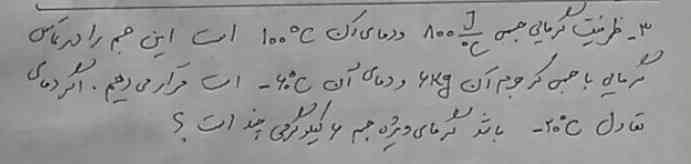 ۳- ظرفیت گرمایی جسمی ۸۰۰ J/°C و دمای آن ۱۰۰°C است این جسم را در تماس
گرمایی با جسمی که جرم آن ۶kg و دمای آن ۶۰°C- است قرار می دهیم. اگر دمای
تعادل ۲۰°C- باشد گرمای ویژه جسم ۶ کیلوگرمی چند است ؟